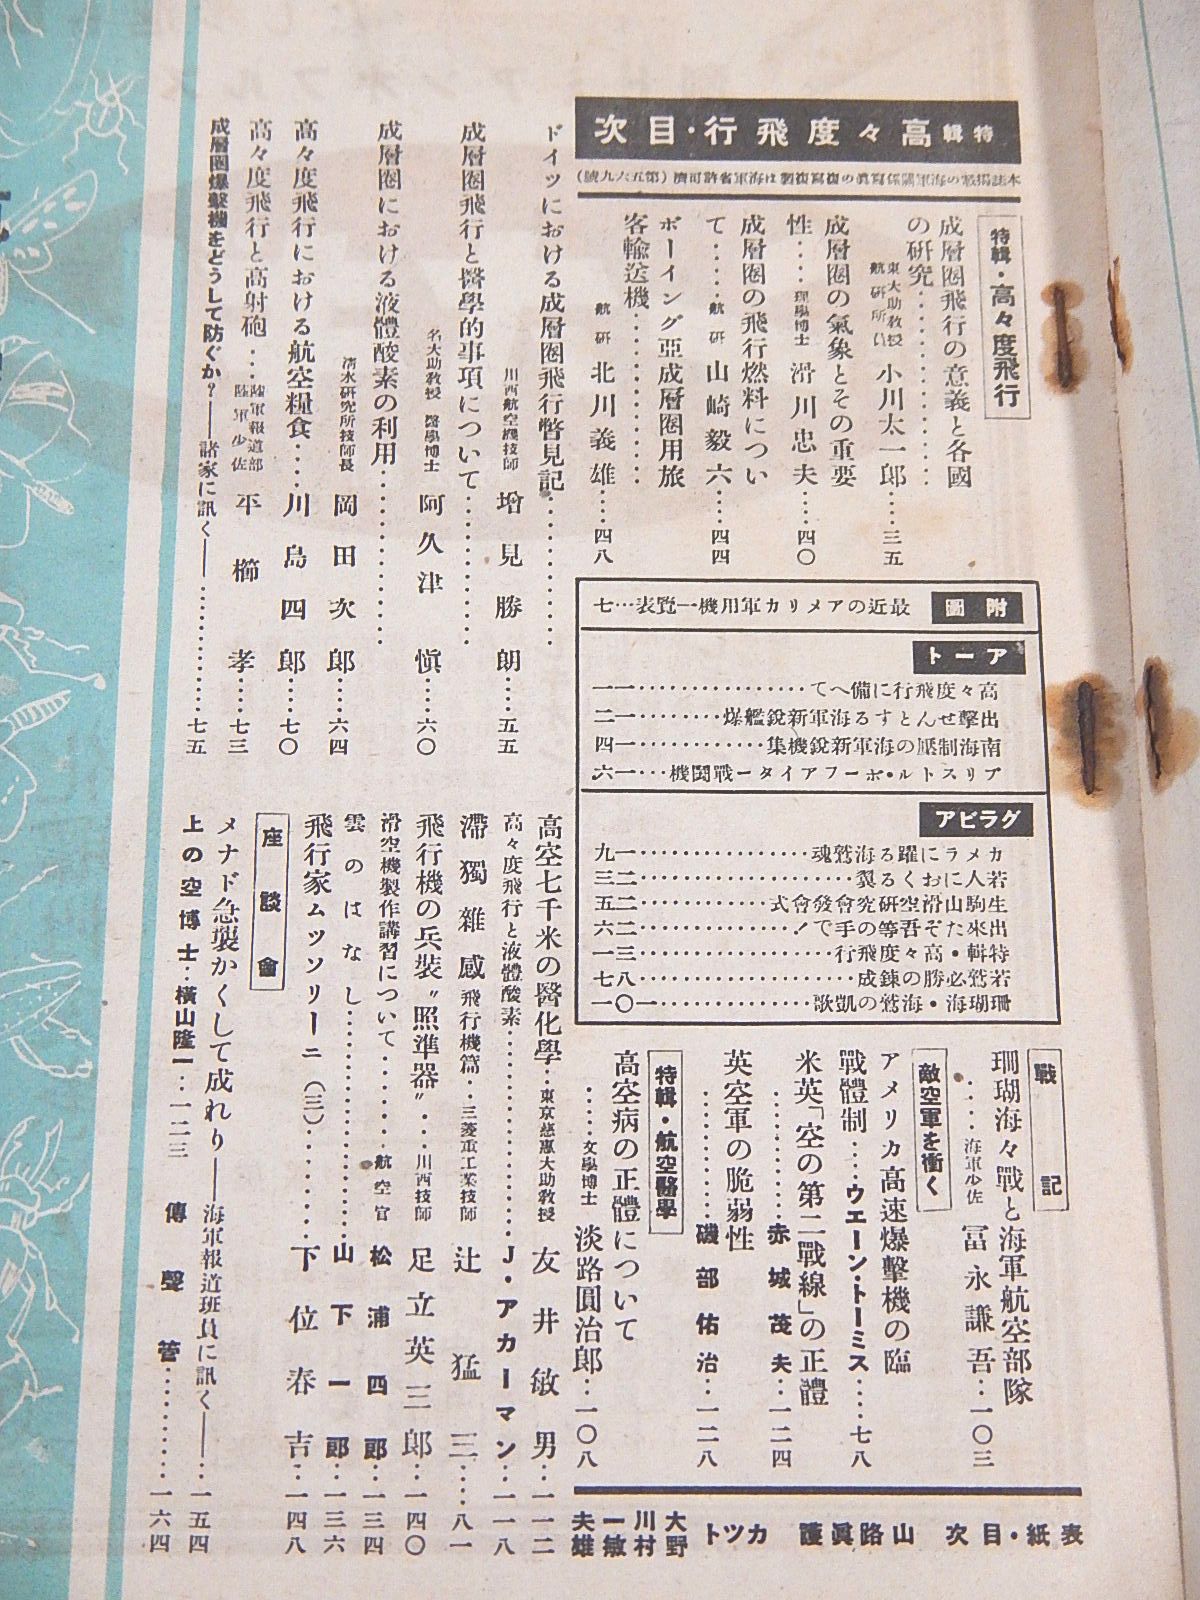 特輯 高々度飛行・目次
本誌掲載の海軍關係寫眞の複寫複製は海軍省許可濟(第五六九號)
特輯・高々度飛行
成層圏飛行の意義と各國
の硏究……………
東大助教授
航硏所員 小川太一郎……三五
成層圏の氣象とその重要
性……理學博士 滑川忠夫……四〇
成層圏の飛行燃料につい
て……航硏 山崎毅六……四四
ボーイング亞成層圏用旅
客輸送機……………
航硏 北川義雄……四八
ドイツにおける成層圏飛行瞥見記……………
川西航空機技師 增見勝朗……五五
成層圏飛行と醫學的事項について……………
名大助教授 醫學博士 阿久津愼……六〇
成層圏における液體酸素の利用……………
淸水硏究所技師長 岡田次郎……六四
高々度飛行における航空糧食……川島四郎……七〇
高々度飛行と高射砲…陸軍報道部
陸軍少佐 平櫛孝……七三
成層圏爆擊機をどうして防ぐか?――諸家に訊く――……………七五
附圖
最近のアメリカ軍用機一覽表…七
アート
高々度飛行に備へて……………一一
出擊せんとする海軍新銳艦爆………一二
南海制壓の海軍新銳機集…………一四
ブリストル・ボーフアイター戰鬪機…一六
グラビア
カメラに躍る海鷲魂……………一九
若人におくる翼……………二三
生駒山滑空硏究會發會式…………二五
出來たぞ吾等の手で!……………二六
特輯・高々度飛行……………三一
若鷲必勝の鍊成……………八七
珊瑚海・海鷲の凱歌……………一〇一
戰記
珊瑚海々戰と海軍航空部隊
……海軍少佐 冨永謙吾…一〇三
敵空軍を衝く
アメリカ高速爆擊機の臨
戰體制……ウエーン・トーミス……七八
米英「空の第二戰線」の正體
……………赤城茂夫…一二四
英空軍の脆弱性
……………磯部佑治…一二八
特輯・航空醫學
高空病の正體について
……文學博士 淡路圓治郞…一〇八
高空七千米の醫化學…東京慈惠大助教授 友井敏男…一一二
高々度飛行と液體酸素……………J・アカーマン…一一八
滯獨雜感 飛行機篇…三菱重工業技師 辻猛三……八一
飛行機の兵裝〝照準器〟…川西技師 足立英三郎…一四〇
滑空機製作講習について……航空官 松浦四郎…一三四
雲のはなし……………山下一郎…一三六
飛行家ムッソリーニ(三)……………下位春吉…一四八
座談會
メナド急襲かくして成れり――海軍報道班員に訊く――…一五四
上の空博士…橫山隆一…一二三 傳聲管……………一六四
表紙・目次 山路眞護 カット 大野
川村
一敏
夫雄